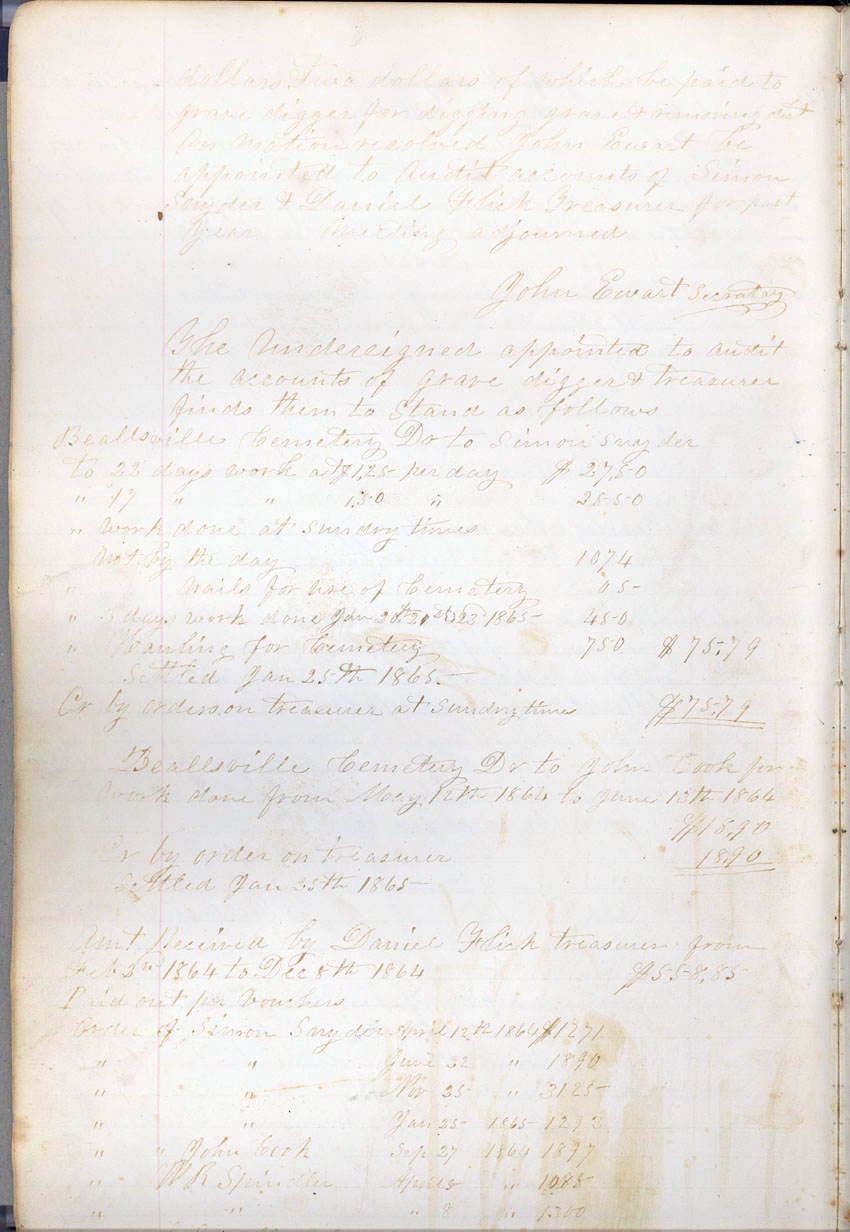 dollars two dollars of which be paid to
grave digger for digging grave & running dirt
On Motion resolved John Ewart be
appointed to Audit accounts of Simon
Snyder & Daniel Flick Treasurer for past
Year Meeting adjourned
John Ewart Secratay
The Undersigned appointed to audit
the accounts of grave digger & treasurer
finds them to Stand as follows
Beallsville Cemetery Dr to Simon Snyder
to 22 days work at $1,25 per day $ 27,50
" 17 " " 1.50 " 25 50
" work done at Sundry times
not by the day 10 74
" Nails for use of Cemetery 05
" 3 days work done Jan 20th 21st & 23 1865 4 50
" Hauling for Cemetery 7 50 $ 75,79
Settled Jan 25th 1865
Cr by orders on treasurer at Sundry times $ 75,79
Beallsville Cemetery Dr to John Cook for
work done from May 12th 1864 to June 13th 1864
$18,90
Cr by order on treasurer 18 90
Settled Jan 25th 1865
Amt Received by Daniel Flick treasurer from
Feb 3rd 1864 to Dec 8th 1864 $558,85
Paid out per Vouchers
Order of Simon Snyder April 12th 1864 $12 71
" " June 22 " 18 90
" " Nov 25 " 31 25
" " Jan 25 1865 12 93
" " John Cook Sep 27 1864 18 97
" W R Spindler April 8 " 10 85
" " " 8 " 13 00